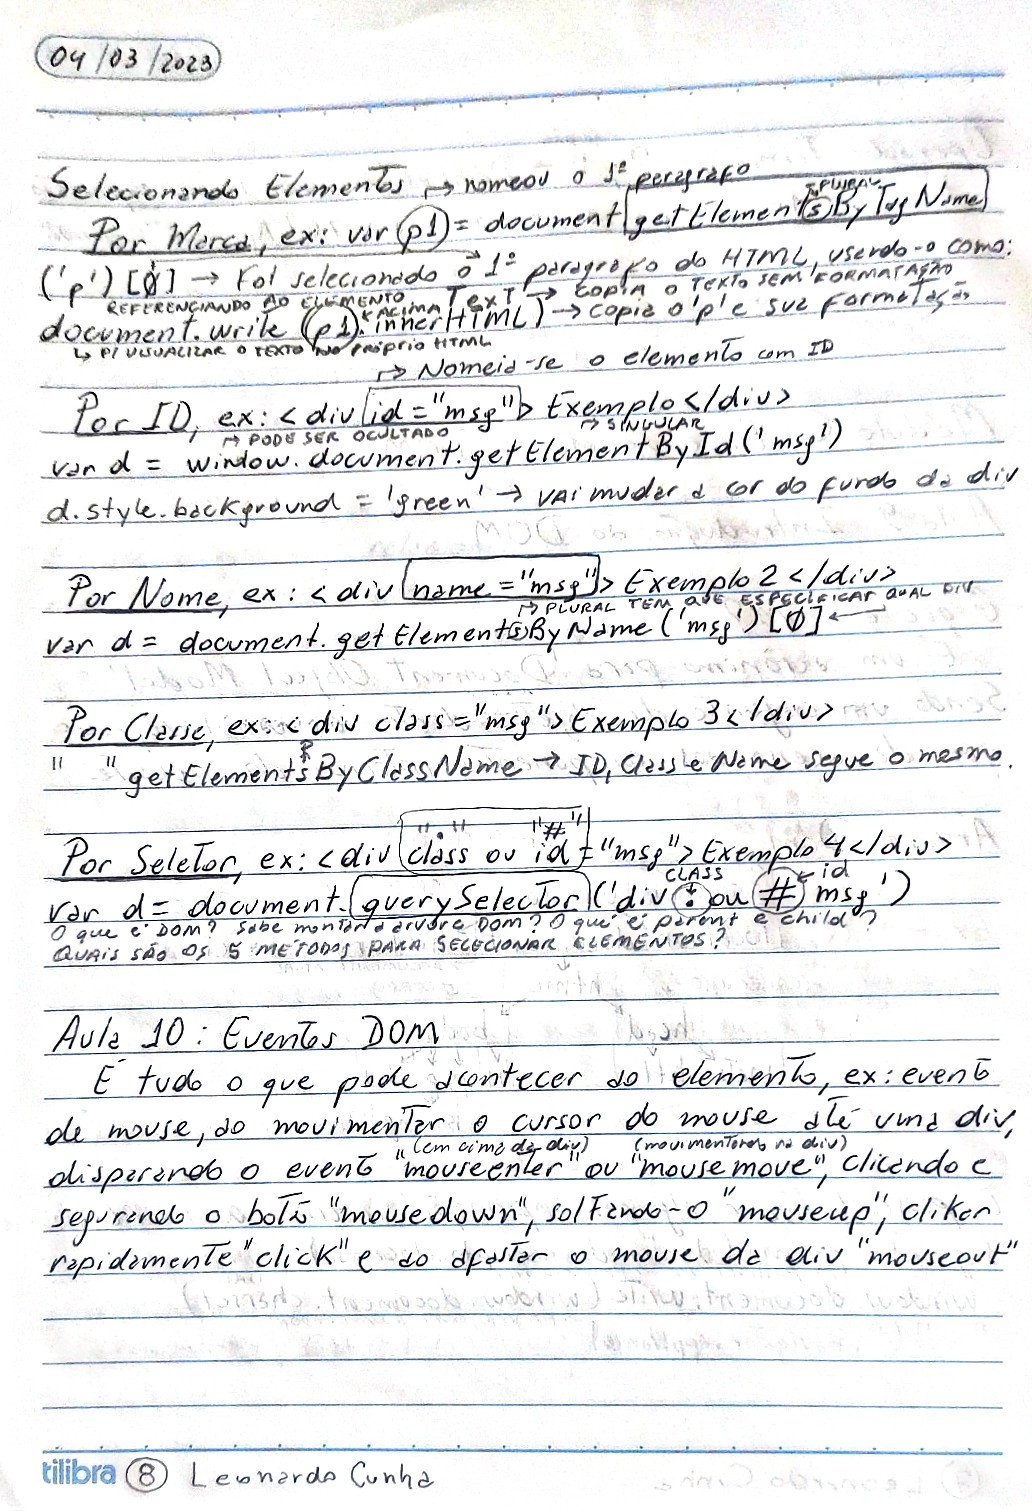 04/03/2023
Selecionando Elementos → nomeou o 1º paragrafo
↱PLURAL
Por Marca, ex: var p1 = document getElement(s)ByTagName
('p')[0] → Foi selecionado o 1º paragrafo do HTML, usando-o como:
REFERENCIANDO AO ELEMENTO ACIMA Text → COPIA O TEXTO SEM FORMATAÇÃO
document.write (p1.innerHTML) → copia o 'p' e sua formatação
↳ P/ VISUALIZAR O TEXTO NO PRÓPRIO HTML
↱ Nomeia-se o elemento com ID
Por ID, ex: <div id="msg"> Exemplo </div>
↱ PODE SER OCULTADO ↱ SINGULAR
var d = window.document.getElementById('msg')
d.style.background = 'green' → vai mudar a cor do fundo da div
Por Nome, ex: <div name="msg"> Exemplo 2 </div>
↱ PLURAL TEM QUE ESPECIFICAR QUAL DIV
var d = document.getElement(s)ByName('msg')[0] ←
Por Classe, ex: <div class="msg"> Exemplo 3 </div>
" " getElementsByClassName → ID, Class e Name segue o mesmo.
"." "#"
Por Seletor, ex: <div class ou id="msg"> Exemplo 4 </div>
CLASS ← id
var d = document.querySelector('div . ou # msg')
O que é DOM? Sabe montar a árvore DOM? O que é parent e child?
QUAIS SÃO OS 5 MÉTODOS PARA SELECIONAR ELEMENTOS?
Aula 10: Eventos DOM
É tudo o que pode acontecer ao elemento, ex: evento
de mouse, ao movimentar o cursor do mouse até uma div,
(em cima da div) (movimentando na div)
disparando o evento "mouseenter" ou "mousemove", clicando e
segurando o botão "mousedown", soltando-o "mouseup", clikar
rapidamente "click" e ao afastar o mouse da div "mouseout"
tilibra 8 Leonardo Cunha